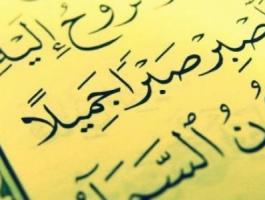 روحُ إِلَيْهِ
صْبِرْ صَبْرًا جَمِيلًا
نُ ٱلسَّمَآ